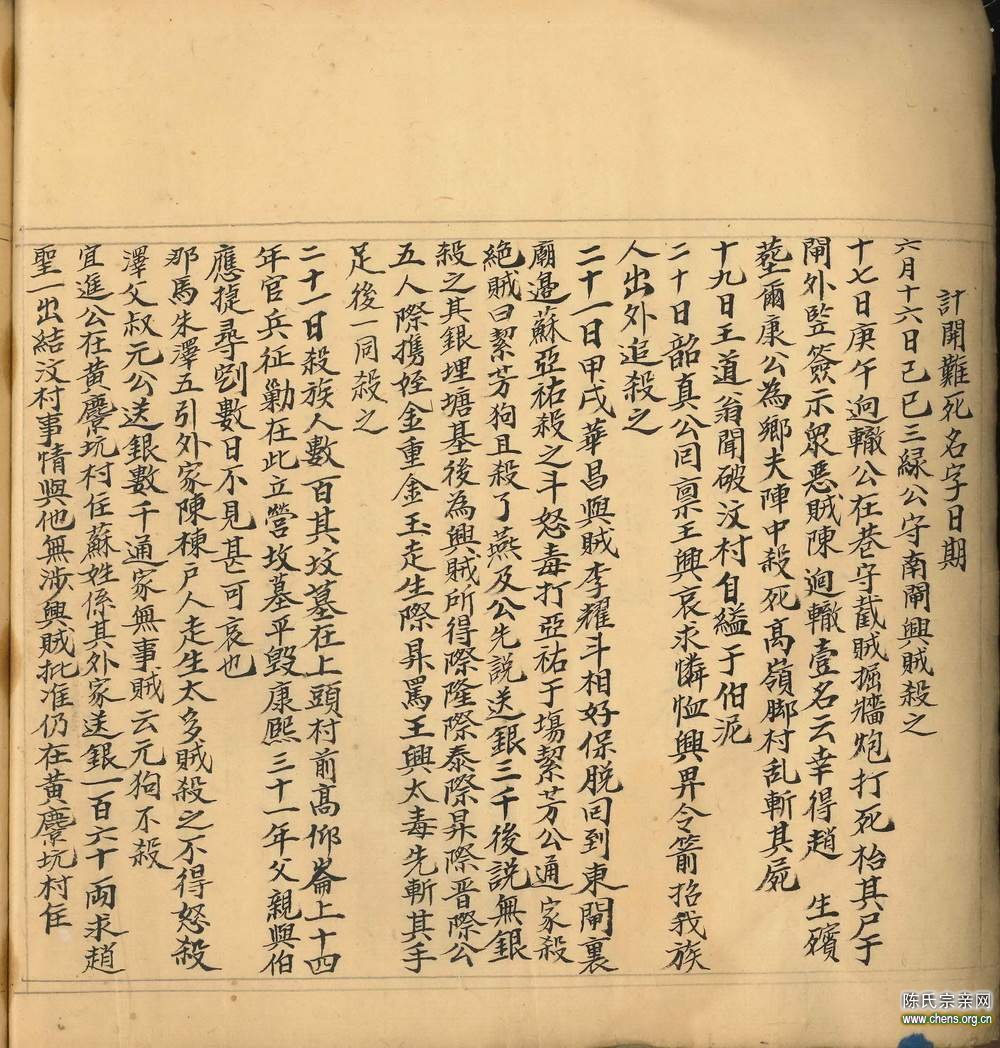 計開難死名字日期
六月十六日己巳三緑公守南閘興賊殺之
十七日庚午逈轍公在巷守截賊掘牆炮打死枱其尸于
閘外竪簽示衆惡賊陳逈轍壹名云幸得趙 生殯
塟爾康公為鄉夫陣中殺死高嶺脚村乱斬其屍
十九日王道翁聞破汶村自縊于伯泥
二十日韶真公囘禀王興哀求憐恤興畀令箭招我族
人出外追殺之
二十一日甲戌華昌與賊李耀斗相好保脱囘到東閘裏
廟邉蘇亞祐殺之斗怒毒打亞祐于塲絜芳公通家殺
絶賊曰絜芳狗且殺了燕及公先説送銀三千後説無銀
殺之其銀埋塘基後為興賊所得際隆際泰際昇際晋際公
五人際携姪金重金玉走生際昇罵王興太毒先斬其手
足後一同殺之
二十一日殺族人數百其坟墓在上頭村前高仰崙上十四
年官兵征勦在此立營坟墓平毁康熙三十一年父親與伯
應㨗尋到數日不見甚可哀也
那馬朱澤五引外家陳棟戸人走生太多賊殺之不得怒殺
澤父叔元公送銀數千通家無事賊云元狗不殺
宜進公在黄麖坑村住蘇姓係其外家送銀一百六十両求趙
聖一出結汶村事情與他無涉興賊批准仍在黄麖坑村住
陈氏宗亲网
www.chens.org.cn